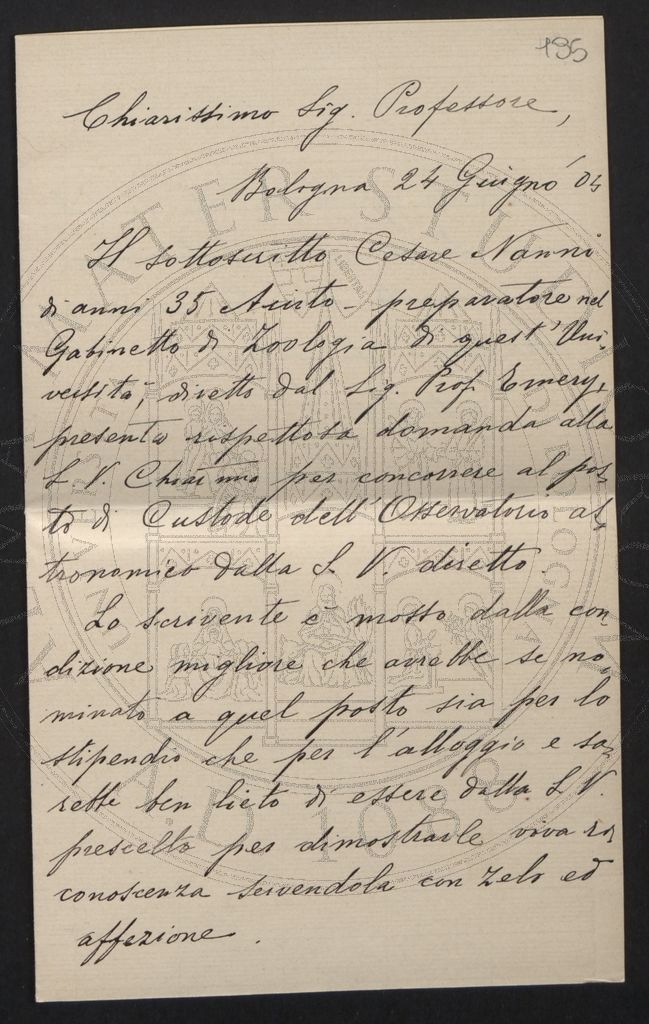 195
Chiarissimo Sig. Professore,
Bologna 24 Giugno 04
Il sottoscritto Cesare Nanni
di anni 35 Aiuto - preparatore nel
Gabinetto di Zoologia di quest' Uni-
versità, diretto dal Sig. Prof. Emery,
presenta rispettosa domanda alla
S. V. Chiar.mma per concorrere al pos-
to di Custode dell' Osservatorio as-
tronomico dalla S. V. diretto.
Lo scrivente è mosso dalla con-
dizione migliore che avrebbe se no-
minato a quel posto sia per lo
stipendio che per l'alloggio e sa-
rebbe ben lieto di essere dalla S. V.
prescelto per dimostrarle viva ri-
conoscenza servendola con zelo ed
affezione.
ALMA MATER STUDIORUM
A.D. 1088